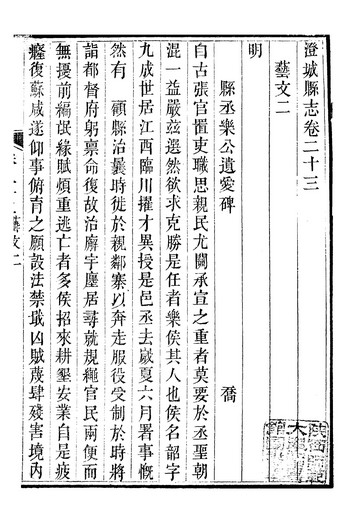 澄城縣志卷二十三
藝文二
明
縣丞樂公遺愛碑 喬
自古張官置吏職思親民尤關承宣之重者莫要於丞聖朝
混一益嚴茲選然欲求克勝是任者樂侯其人也侯名韶字
九成世居江西臨川擢才異授是邑丞去歲夏六月署事慨
然有 顧縣治曩時徙於視鄰寨以奔走服役受制於時將
詣都督府躬禀命復故治廨宇塵居尋就規繩官民兩便而
無擾前編氓緣賦煩重逃亡者多侯招來耕墾安業自是疲
癃復蘇咸遂仰事俯育之願設法禁戢凶賊蔑肆殘害境內